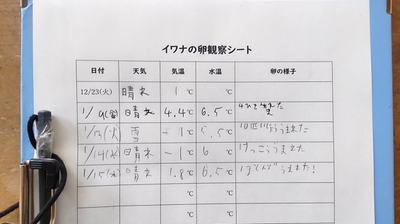 イワナの卵観察シート
日付 天気 気温 水温 卵の様子
12/23(火) 晴れ 1 ℃ ℃
1/9(金) 晴れ 4.4℃ 6.5℃ 4ひき
1/13(火) 雪 -1℃ ℃ うまれた
1/14(水) 晴れ -1℃ 6 ℃ けっこううまれた
1/15(木) 晴れ 1.8℃ 6.5℃ うまれた!
℃ ℃
℃ ℃